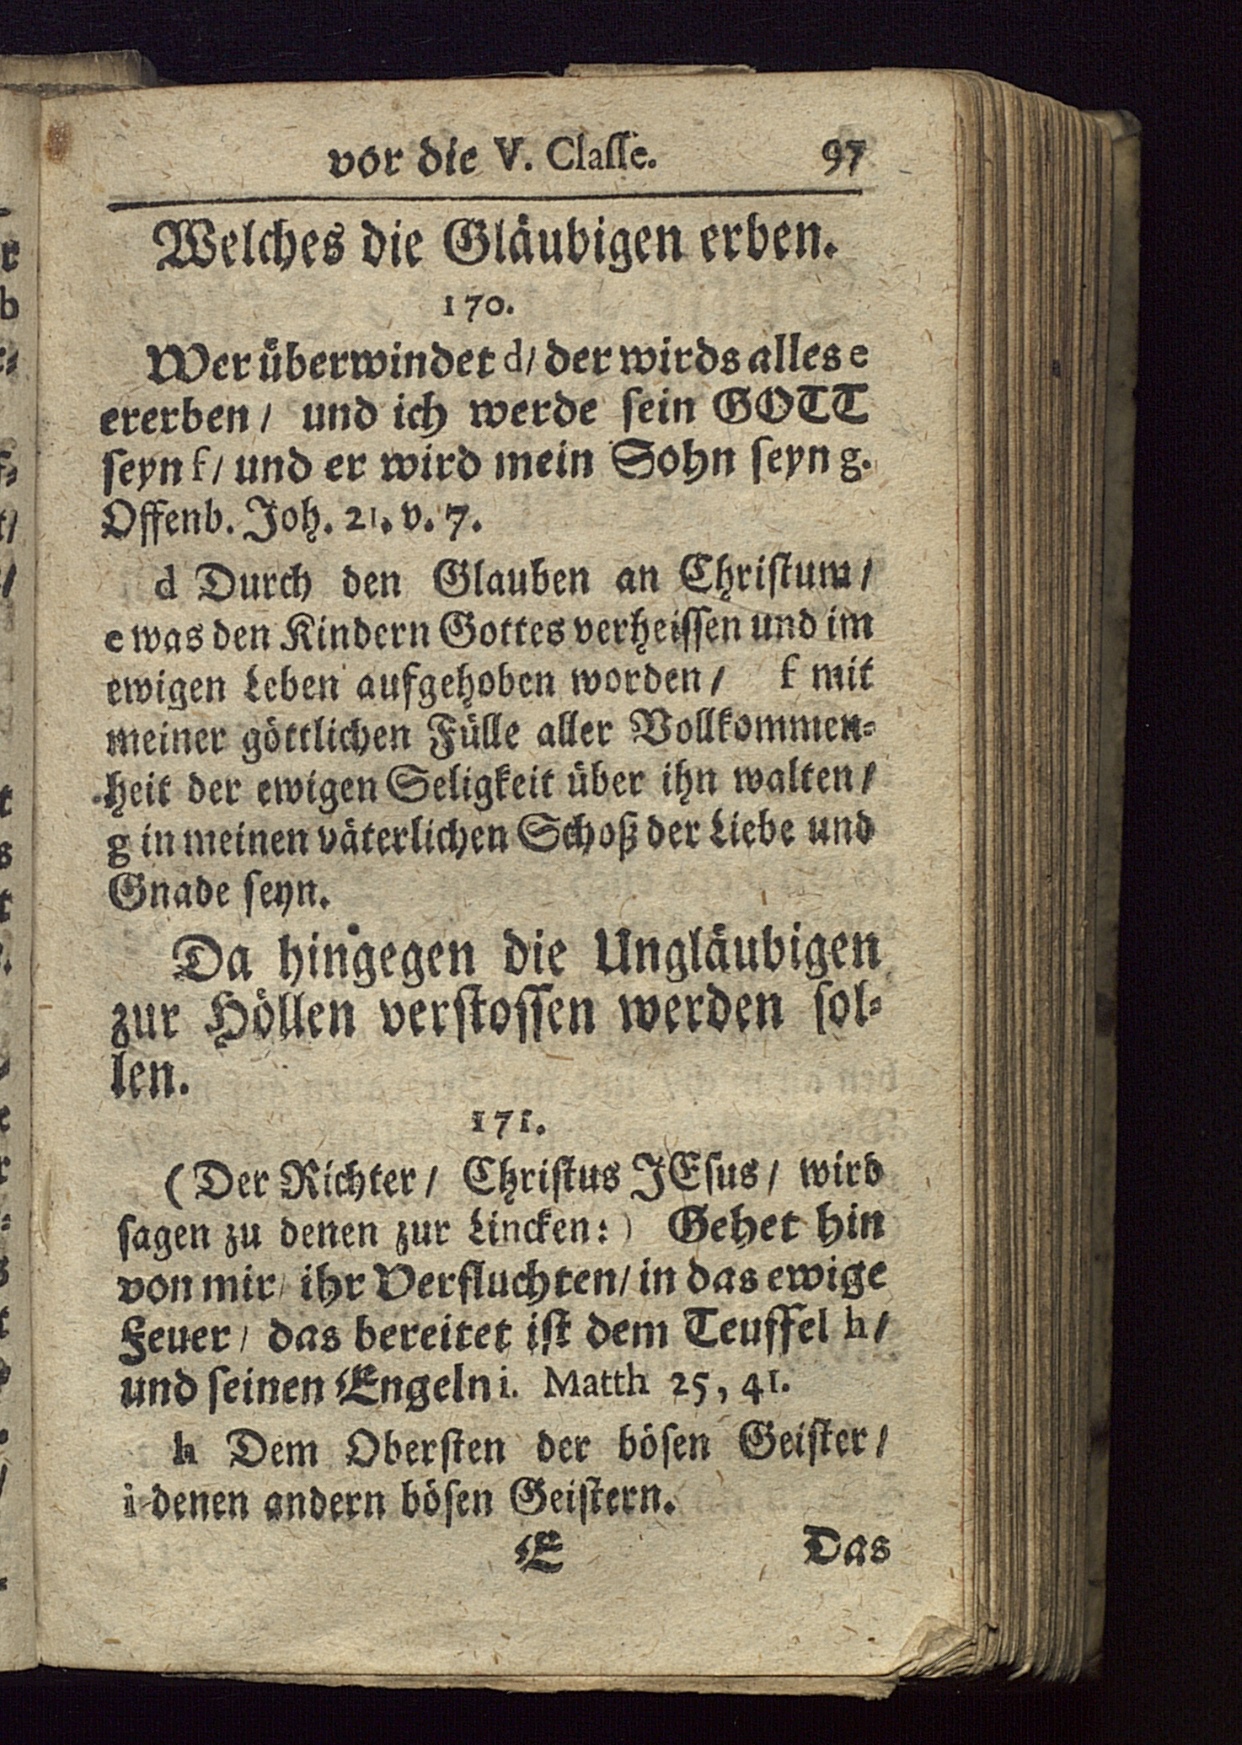 vor die V. Classe. 97
Welches die Gläubigen erben.
170.
Wer überwindet d/ der wirds alles e
ererben/ und ich werde sein GOTT
seyn f/ und er wird mein Sohn seyn g.
Offenb. Joh. 21. v. 7.
d Durch den Glauben an Christum/
e was den Kindern Gottes verheissen und im
ewigen Leben aufgehoben worden/ f mit
meiner göttlichen Fülle aller Vollkommen-
heit der ewigen Seligkeit über ihn walten/
g in meinen väterlichen Schoß der Liebe und
Gnade seyn.
Da hingegen die Ungläubigen
zur Höllen verstossen werden sol-
len.
171.
(Der Richter/ Christus JEsus/ wird
sagen zu denen zur Lincken:) Gehet hin
von mir/ ihr Verfluchten/ in das ewige
Feuer/ das bereitet ist dem Teuffel h/
und seinen Engeln i. Matth 25, 41.
h Dem Obersten der bösen Geister/
i denen andern bösen Geistern.
E Das